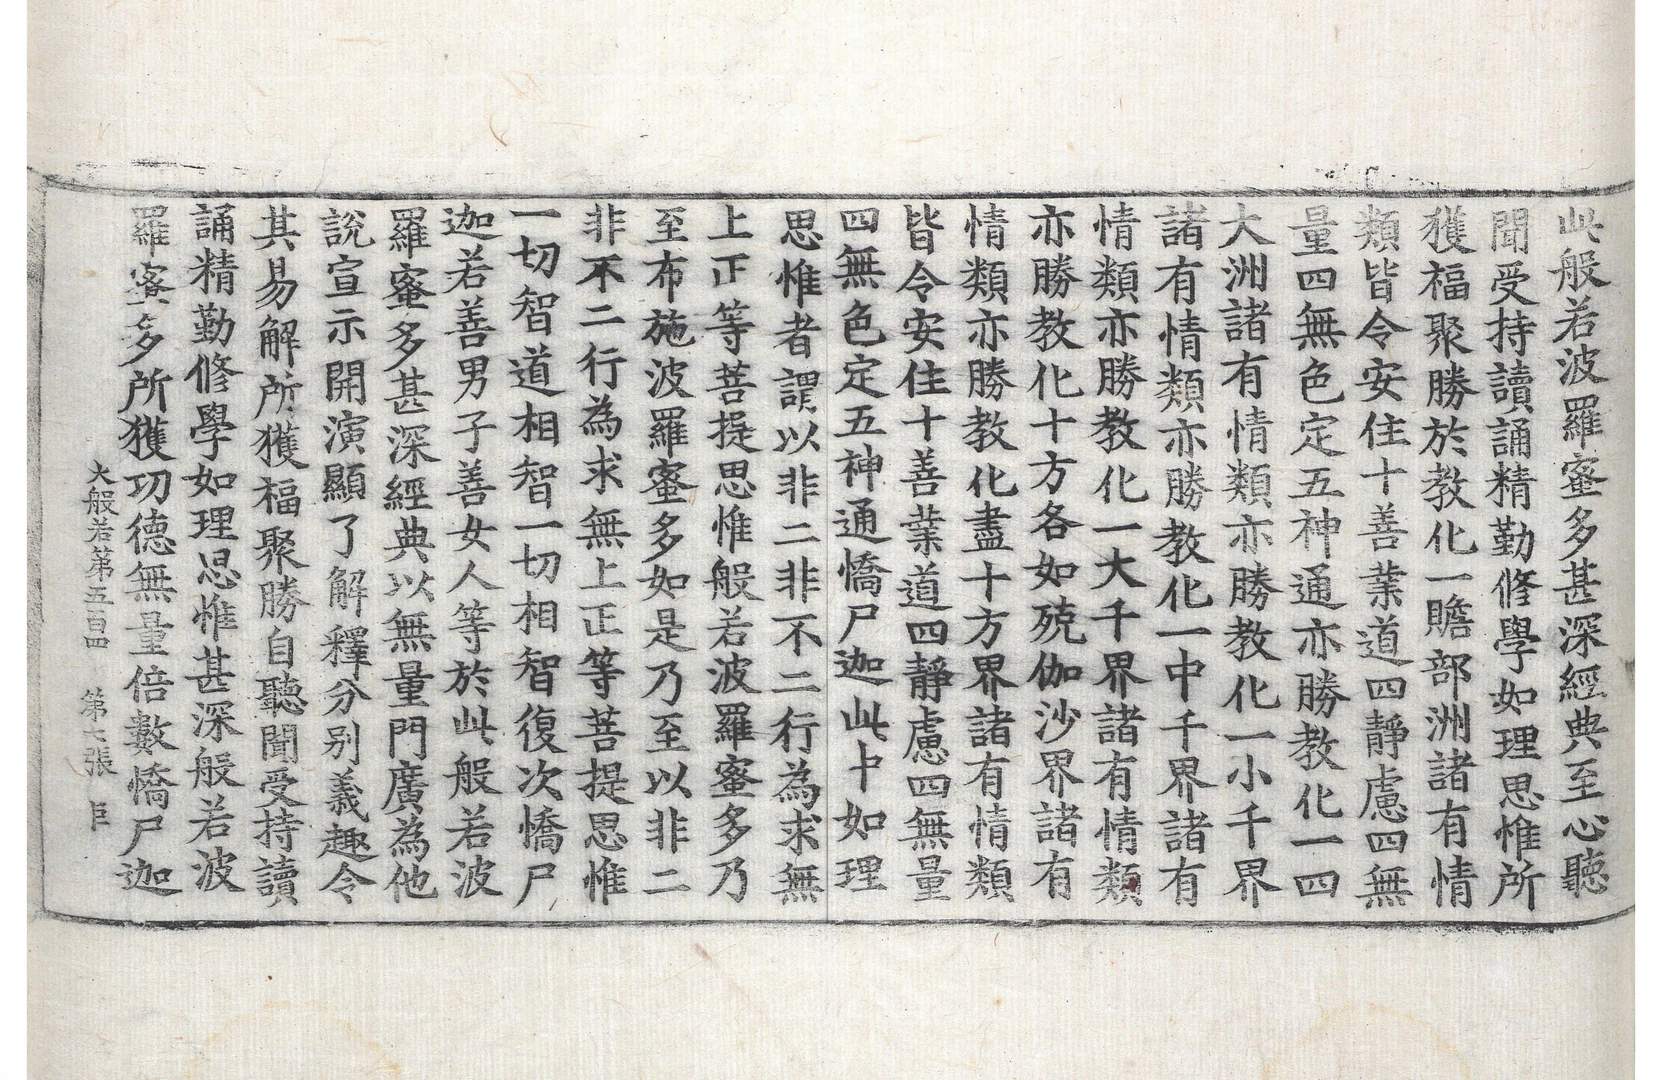 此般若波羅蜜多甚深經典至心聽
聞受持讀誦精勤修學如理思惟所
獲福聚勝於教化一贍部洲諸有情
類皆令安住十善業道四靜慮四無
量四無色定五神通亦勝教化一四
大洲諸有情類亦勝教化一小千界
諸有情類亦勝教化一中千界諸有
情類亦勝教化一大千界諸有情類
亦勝教化十方各如殑伽沙界諸有
情類亦勝教化盡十方界諸有情類
皆令安住十善業道四靜慮四無量
四無色定五神通憍尸迦此中如理
思惟者謂以非二非不二行為求無
上正等菩提思惟般若波羅蜜多乃
至布施波羅蜜多如是乃至以非二
非不二行為求無上正等菩提思惟
一切智道相智一切相智復次憍尸
迦若善男子善女人等於此般若波
羅蜜多甚深經典以無量門廣為他
說宣示開演顯了解釋分別義趣令
其易解所獲福聚勝自聽聞受持讀
誦精勤修學如理思惟甚深般若波
羅蜜多所獲功德無量倍數憍尸迦
大般若第五百四 第七張 巨